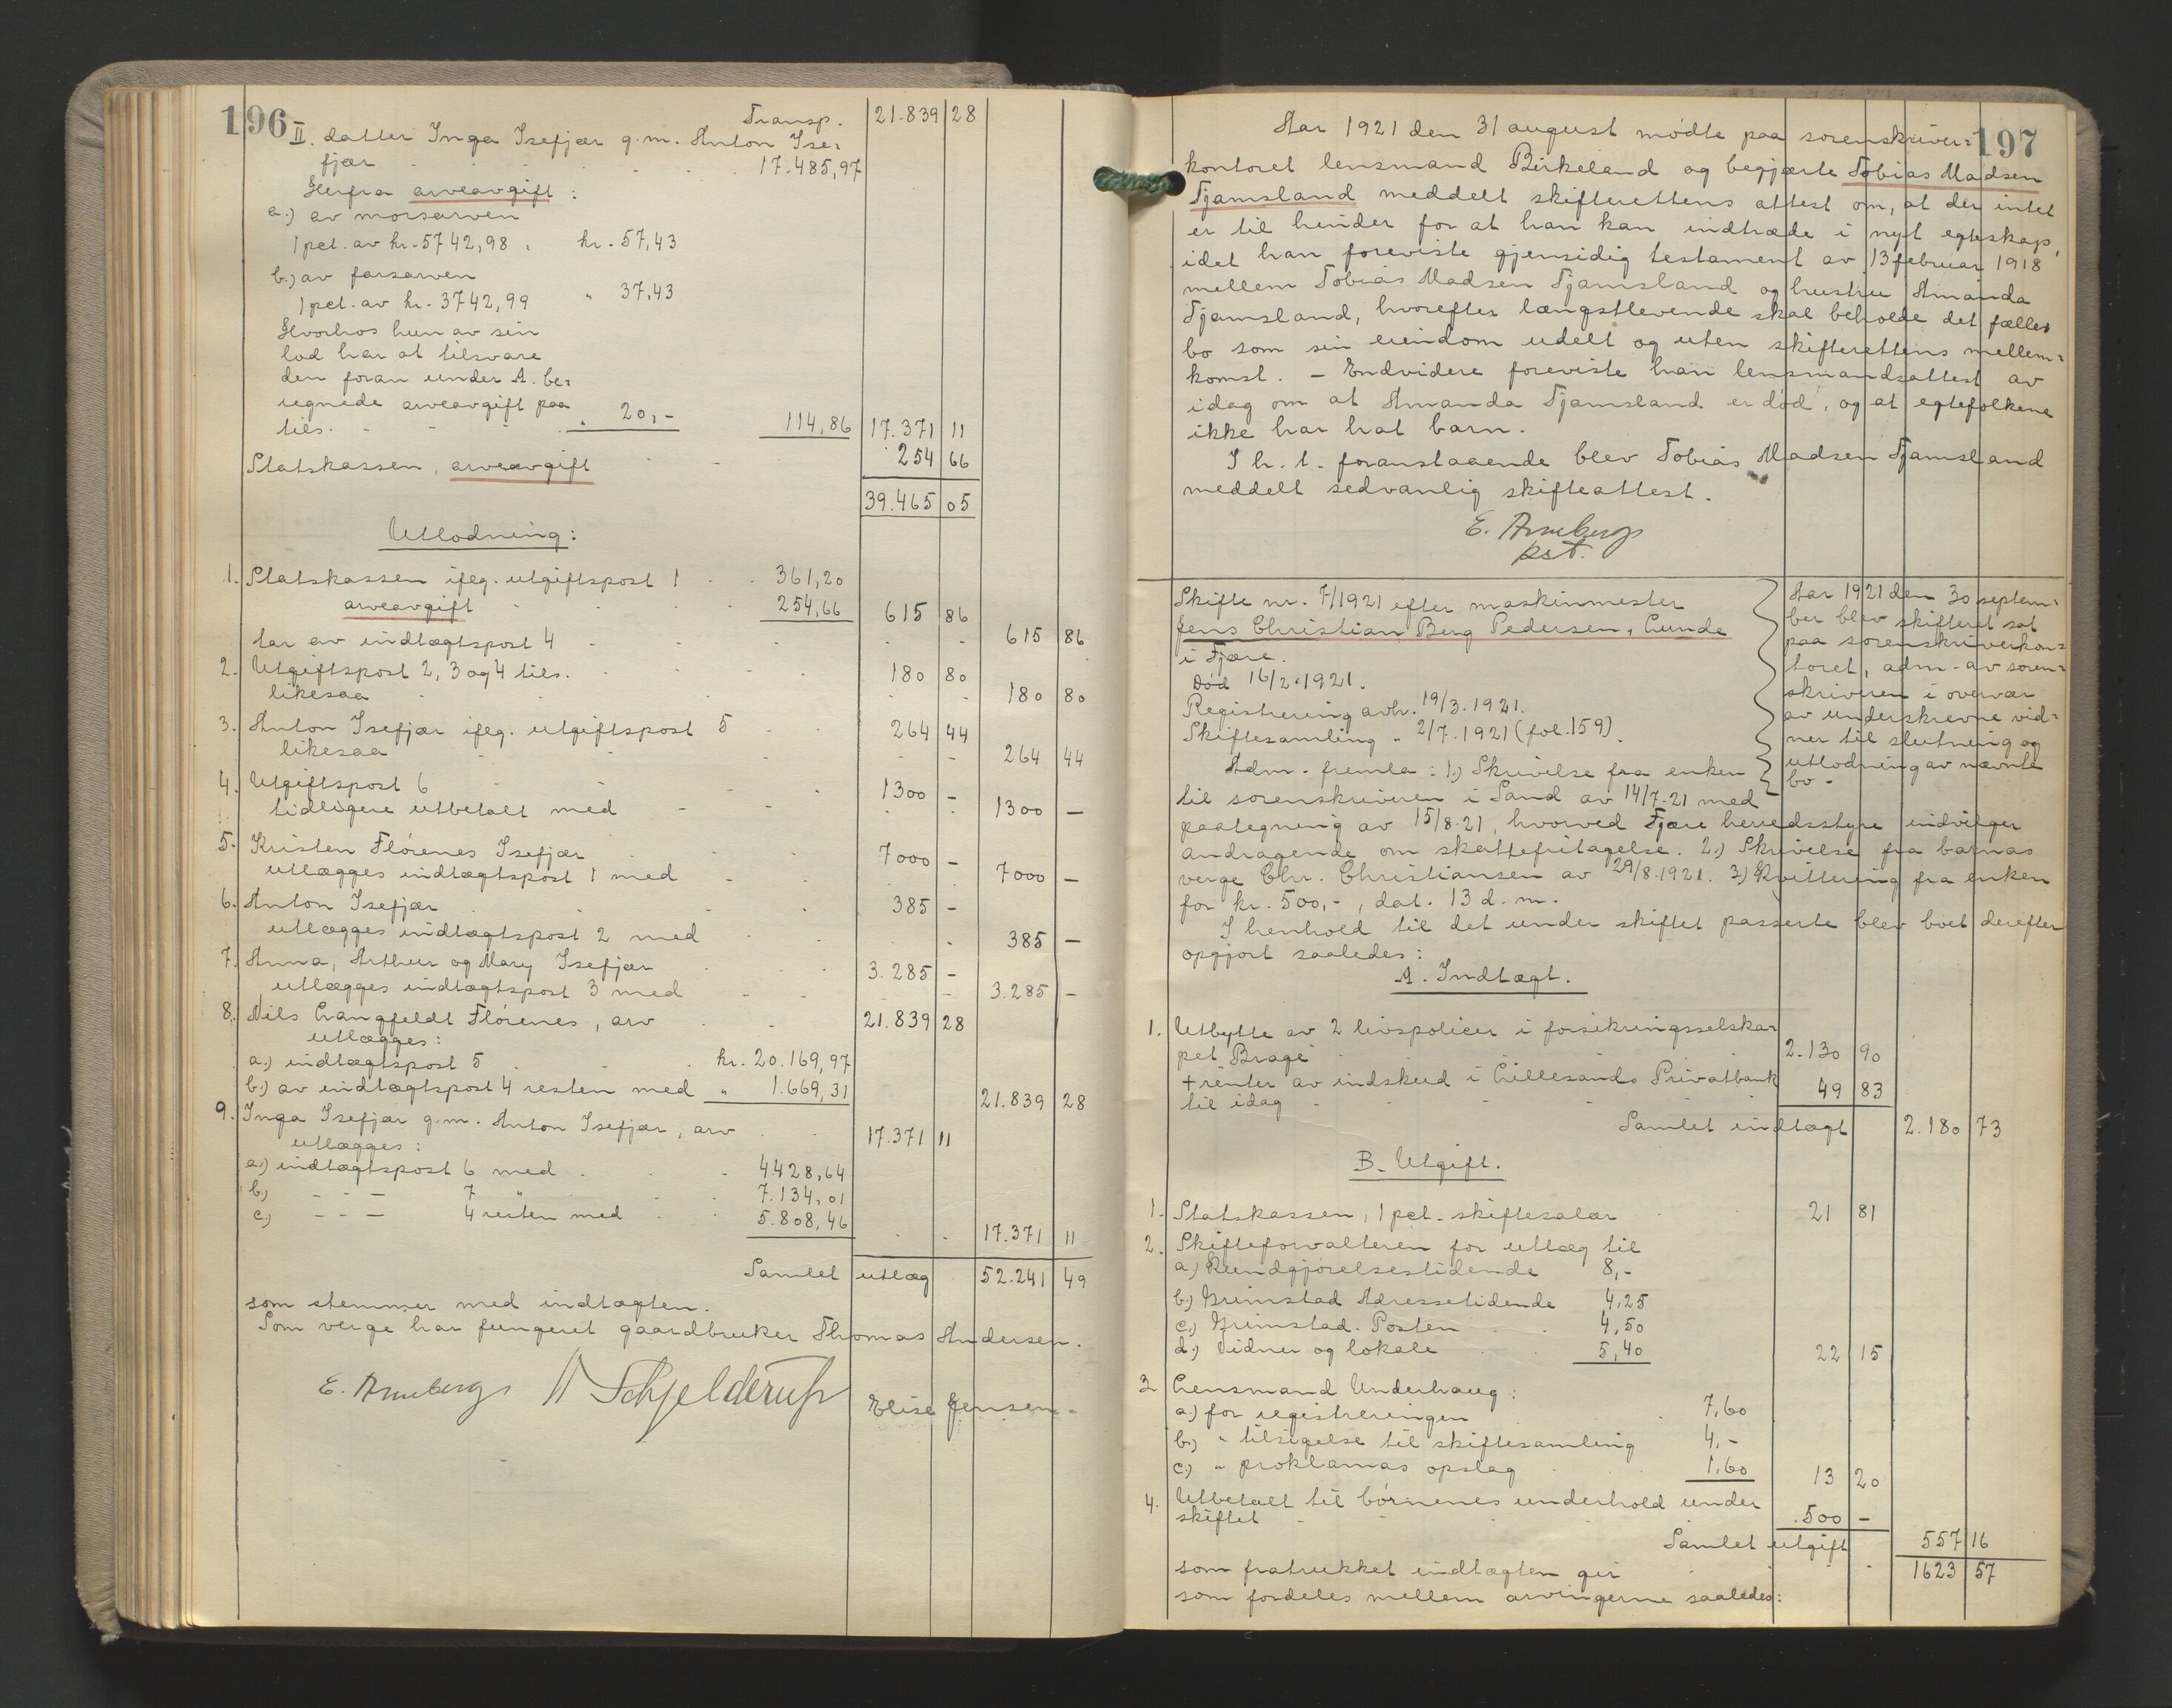 196
Transp. 21.839 28
II. datter Inga Isefjær g.m. Anton Ise-
fjær 17.485,97
Herfra arveavgift:
a.) av morsarven
1 pct. av kr. 5742,98 . kr. 57,43
b.) av farsarven
1 pct. av kr. 3742,99 " 37,43
Hvorhos hun av sin
lod har at tilsvare
den foran under A. be-
regnede arveavgift paa " 20,-
tils. 114,86 17.371 11
Statskassen, arveavgift 254 66
39.465 05
Utlodning:
1. Statskassen ifølg. utgiftspost 1 361,20
arveavgift 254,66 615 86
tar av indtægtspost 4 615 86
2. Utgiftspost 2, 3 og 4 tils. 180 80
likesaa 180 80
3. Anton Isefjær ifølg. utgiftspost 5 264 44
likesaa 264 44
4. Utgiftspost 6 1300 -
tidligere utbetalt med 1300 -
5. Kristen Flörenes Isefjær 7000 -
utlægges indtægtspost 1 med 7000 -
6. Anton Isefjær 385 -
utlægges indtægtspost 2 med 385 -
7. Anna, Arthur og Mary Isefjær 3.285 -
utlægges indtægtspost 3 med 3.285 -
8. Nils Langfeldt Flörenes, arv 21.839 28
utlægges:
a.) indtægtspost 5 kr. 20.169,97
b.) av indtægtspost 4 resten med " 1.669,31 21.839 28
9. Inga Isefjær g.m. Anton Isefjær, arv 17.371 11
utlægges:
a.) indtægtspost 6 med 4.428,64
b.) - - - 7 " 7.134,01
c.) - - - 4 resten med 5.808,46 17.371 11
Samlet utlæg 52.241 49
som stemmer med indtægten.
Som verge har fungeret gaardbruker Thomas Andersen.
E. Arneberg N Schjelderup Elise Jensen -
197
Aar 1921 den 31 august mödte paa sorenskriver-
kontoret lensmand Birkeland og begjærte Tobias Madsen
Tjamsland meddelt skifterettens attest om, at der intet
er til hinder for at han kan indtræde i nyt egteskap,
idet han foreviste gjensidig testament av 13 februar 1918
mellem Tobias Madsen Tjamsland og hustru Amanda
Tjamsland, hvorefter længstlevende skal beholde det fælles
bo som sin eiendom udelt og uten skifterettens mellem-
komst. - Endvidere foreviste han lensmandsattest av
idag om at Amanda Tjamsland er död, og at egtefolkene
ikke har hat barn.
I h. t. foranstaaende blev Tobias Madsen Tjamsland
meddelt sedvanlig skifteattest.
E. Arneberg
pst.
Skifte nr. 7/1921 efter maskinmester
Jens Christian Berg Pedersen, Lunde
i Fjære.
Död 16/2.1921.
Registrering avh. 19/3.1921.
Skiftesamling " 2/7.1921 (fol. 159).
Aar 1921 den 30 septem-
ber blev skifteret sat
paa sorenskriverkon-
toret, adm. av soren-
skriveren i overvær
av underskrevne vid-
ner til slutning og
utlodning av nævnte
bo -
Adm. fremla: 1.) Skrivelse fra enken
til sorenskriveren i Sand av 14/7-21 med
paategning av 15/8-21, hvorved Fjære herredsstyre indvilger
andragende om skattefritagelse. 2.) Skrivelse fra barnas
verge Chr. Christiansen av 29/8.1921. 3) Kvittering fra enken
for kr. 500,-, dat. 13 d. m.
I henhold til det under skiftet passerte blev boet derefter
opgjort saaledes:
A. Indtægt.
1. Utbytte av 2 livspolicer i forsikringsselska-
pet Brage 2.130 90
+ renter av indskud i Lillesands Privatbank
til idag 49 83
Samlet indtægt 2.180 73
B. Utgift.
1. Statskassen, 1 pct. skiftesalær 21 81
2. Skifteforvalteren for utlæg til
a.) Kundgjörelsestidende 8,-
b.) Grimstad Adressetidende 4,25
c.) Grimstad-Posten 4,50
d.) Vidner og lokale 5,40 22 15
3. Lensmand Underhaug:
a.) for registreringen 7,60
b.) " tilsigelse til skiftesamling 4,-
c.) " proklamas opslag 1,60 13 20
4. Utbetalt til börnenes underhold under
skiftet 500 -
Samlet utgift 557 16
som fratrukket indtægten gir 1623 57
som fordeles mellem arvingerne saaledes: